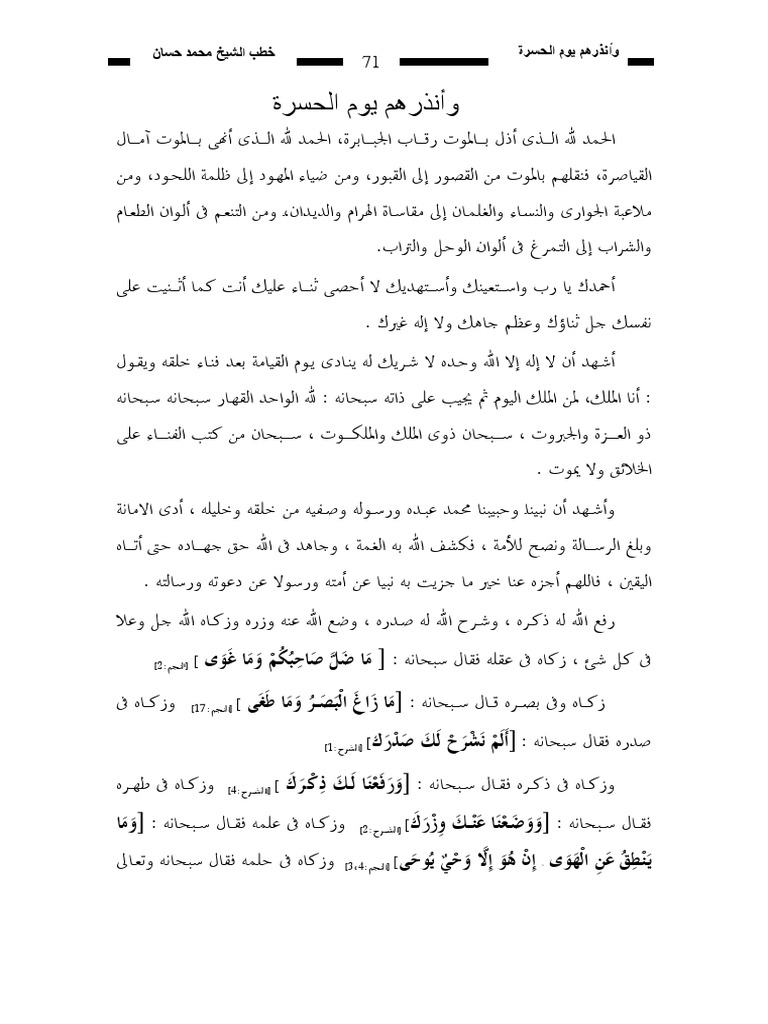 وأنذرهم يوم الحسرة 71 خطب الشيخ محمد حسان
وأنذرهم يوم الحسرة
الحمد لله الذى أذل بالموت رقاب الجبابرة، الحمد لله الذى أنهى بالموت آمال
القياصرة، فنقلهم بالموت من القصور إلى القبور، ومن ضياء المهود إلى ظلمة اللحود، ومن
ملاعبة الجوارى والنساء والغلمان إلى مقاساة الهرام والديدان، ومن التنعم فى ألوان الطعام
والشراب إلى التمرغ فى ألوان الوحل والتراب.
أحمدك يا رب واستعينك وأستهديك لا أحصى ثناء عليك أنت كما أثنيت على
نفسك جل ثناؤك وعظم جاهك ولا إله غيرك .
أشهد أن لا إله إلا الله وحده لا شريك له ينادى يوم القيامة بعد فناء خلقه ويقول
: أنا الملك، لمن الملك اليوم ثم يجيب على ذاته سبحانه : لله الواحد القهار سبحانه سبحانه
ذو العزة والجبروت ، سبحان ذوى الملك والملكوت ، سبحان من كتب الفناء على
الخلائق ولا يموت .
وأشهد أن نبينا وحبيبنا محمد عبده ورسوله وصفيه من خلقه وخليله ، أدى الامانة
وبلغ الرسالة ونصح للأمة ، فكشف الله به الغمة ، وجاهد فى الله حق جهاده حتى أتاه
اليقين ، فاللهم أجزه عنا خير ما جزيت به نبيا عن أمته ورسولا عن دعوته ورسالته .
رفع الله له ذكره ، وشرح الله له صدره ، وضع الله عنه وزره وزكاه الله جل وعلا
فى كل شئ ، زكاه فى عقله فقال سبحانه : [ مَا ضَلَّ صَاحِبُكُمْ وَمَا غَوَى ] [النجم:2]
زكاه وفى بصره قال سبحانه : [مَا زَاغَ الْبَصَرُ وَمَا طَغَى ] [النجم:17] وزكاه فى
صدره فقال سبحانه : [أَلَمْ نَشْرَحْ لَكَ صَدْرَكَ] [الشرح:1]
وزكاه فى ذكره فقال سبحانه : [وَرَفَعْنَا لَكَ ذِكْرَكَ ] [الشرح:4] وزكاه فى طهره
فقال سبحانه : [وَوَضَعْنَا عَنْكَ وِزْرَكَ] [الشرح:2] وزكاه فى علمه فقال سبحانه : [وَمَا
يَنْطِقُ عَنِ الْهَوَى . إِنْ هُوَ إِلَّا وَحْيٌ يُوحَى] [النجم:3،4] وزكاه فى حلمه فقال سبحانه وتعالى